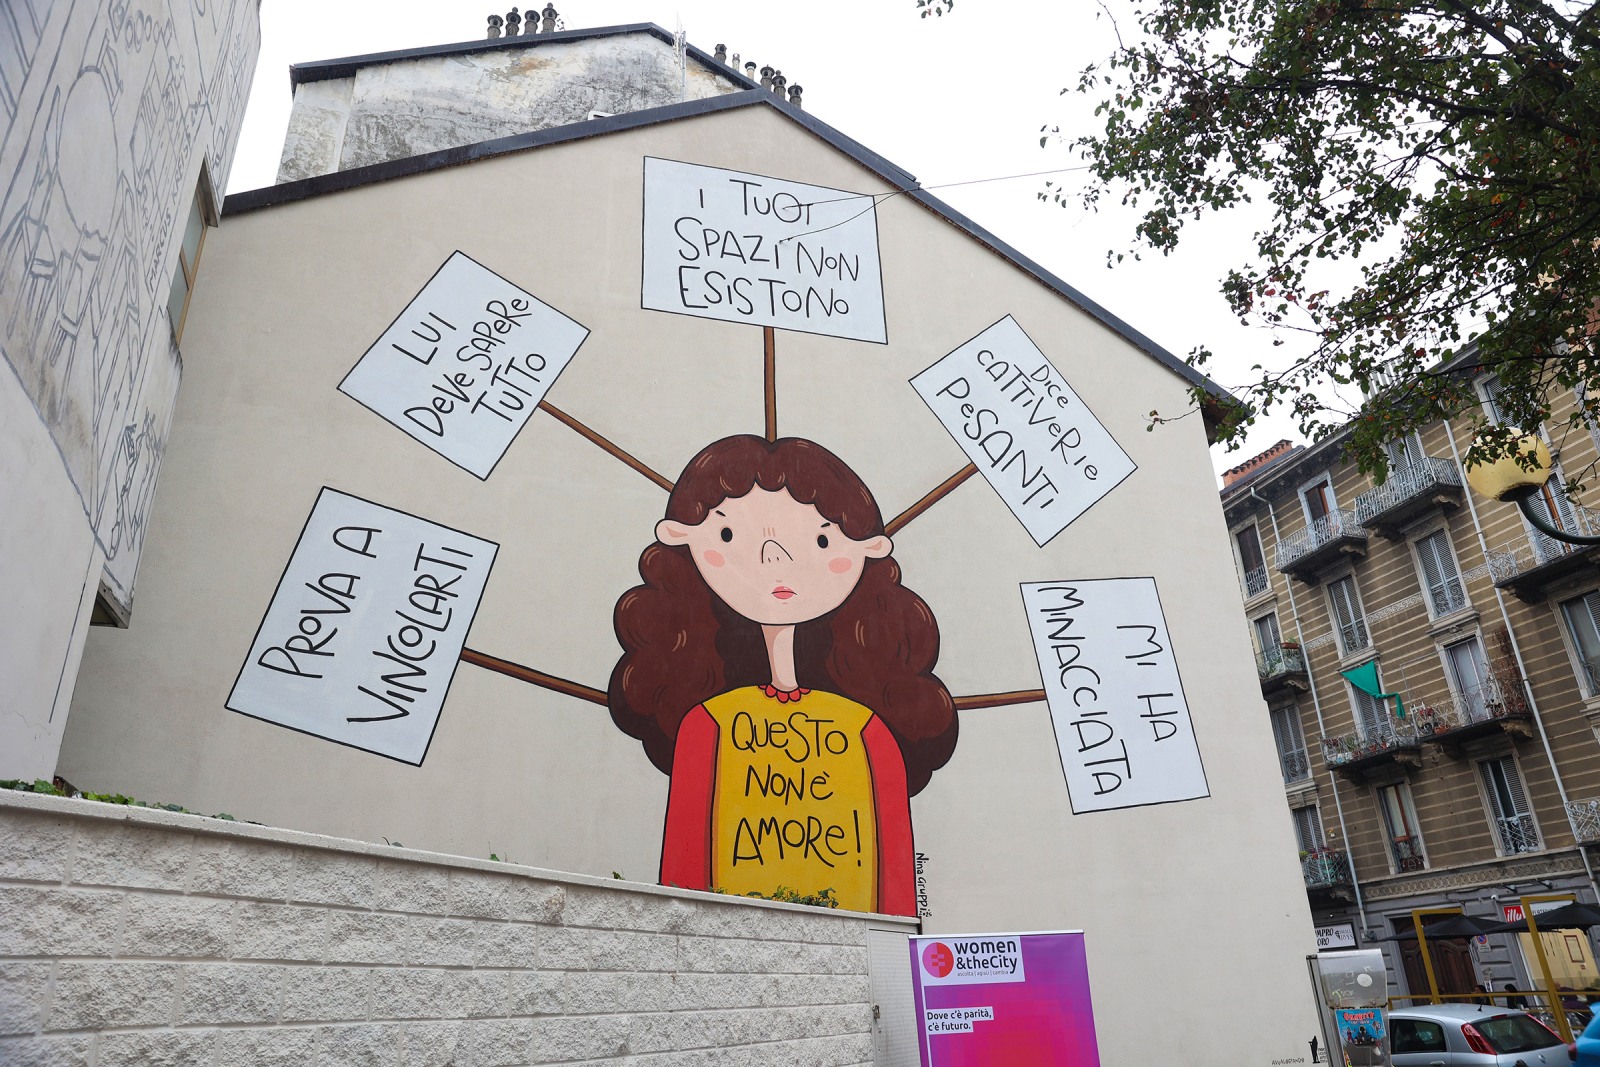 I TUOI
SPAZI NON
ESISTONO
LUI
DEVE SAPERE
TUTTO
DICE
CATTIVERIE
PESANTI
PROVA A
VINCOLARTI
MI HA
MINACCIATA
QUESTO
NON È
AMORE!
Nina Gruppi
women
&theCity
ascolta | agisci | cambia
Dove c'è parità,
c'è futuro.
illy